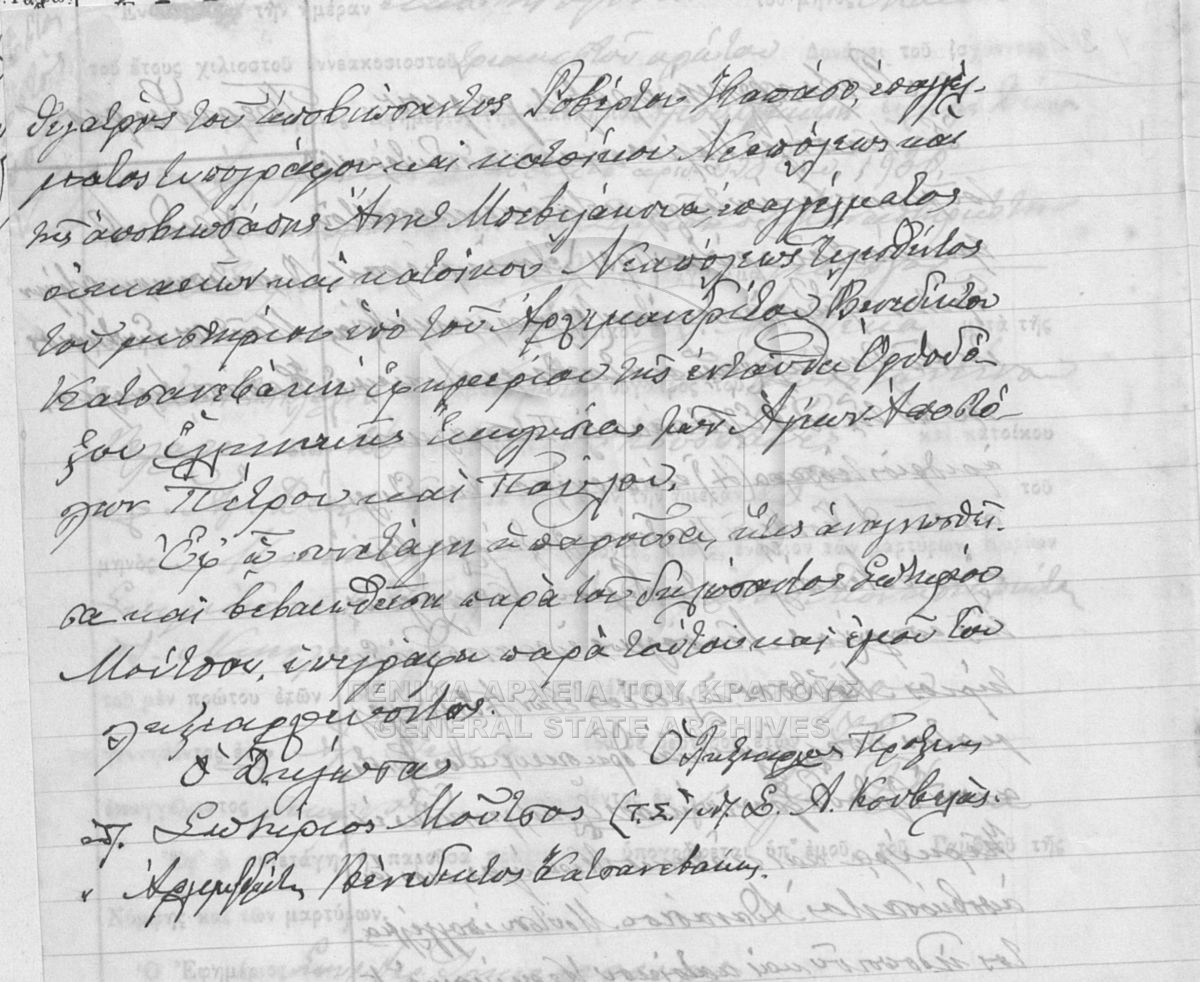 θυγατρὸς τοῦ ἀποβιώσαντος Ροβέρτου Καπάσο, ἐπαγγέλ-
ματος τυπογράφου καὶ κατοίκου Νεαπόλεως καὶ
τῆς ἀποβιωσάσης Ἄννης ἐπαγγέλματος
οἰκιακῶν καὶ κατοίκου Νεαπόλεως τελεσθέντος
τοῦ μυστηρίου ὑπὸ τοῦ Ἀρχιμανδρίτου Βενεδίκτου
Κατσανεβάκη ἐφημερίου τῆς ἐνταῦθα Ὀρθοδό-
ξου Ἑλληνικῆς Ἐκκλησίας τῶν Ἁγίων Ἀποστό-
λων Πέτρου καὶ Παύλου.
Ἐφ' ᾧ συνετάγη ἡ παροῦσα, ἥτις ἀναγνωσθεῖ-
σα καὶ βεβαιωθεῖσα παρὰ τοῦ δηλώσαντος Σωτηρίου
Μούτσου, ὑπεγράφη παρὰ τούτου καὶ ἐμοῦ τοῦ
ληξιαρχεύοντος.
Ὁ Δηλώσας Ὁ Ληξίαρχος Πρόξενος
ὑπ. Σωτήριος Μοῦτσος (Τ.Σ.) ὑπ. Σ. Α. Κουβελᾶς.
" Ἀρχιμανδρίτης Βενέδικτος Κατσανεβάκης.
ΓΕΝΙΚΑ ΑΡΧΕΙΑ ΤΟΥ ΚΡΑΤΟΥΣ
GENERAL STATE ARCHIVES